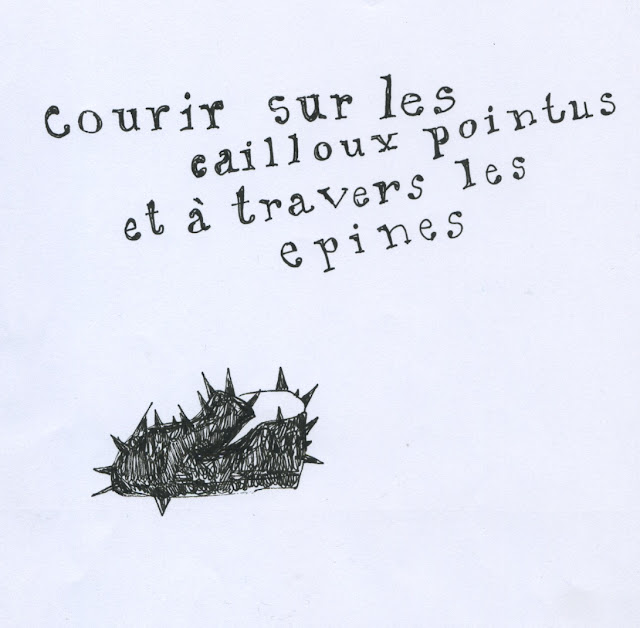 Courir sur les
cailloux pointus
et à travers les
epines